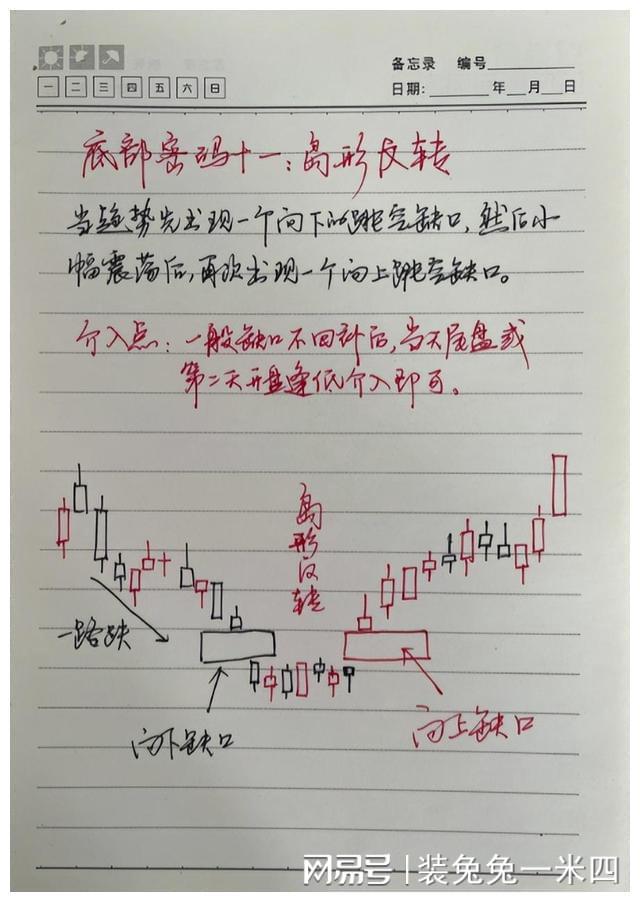 备忘录 编号
一 二 三 四 五 六 日
日期: 年 月 日
底部密码十一:岛形反转
当趋势先出现一个向下的跳空缺口,然后小
幅震荡后,再次出现一个向上跳空缺口。
介入点:一般缺口不回补后,当天尾盘或
第二天开盘逢低介入即可。
岛形反转
一路跌
向下缺口
向上缺口
网易号 | 装兔兔一米四